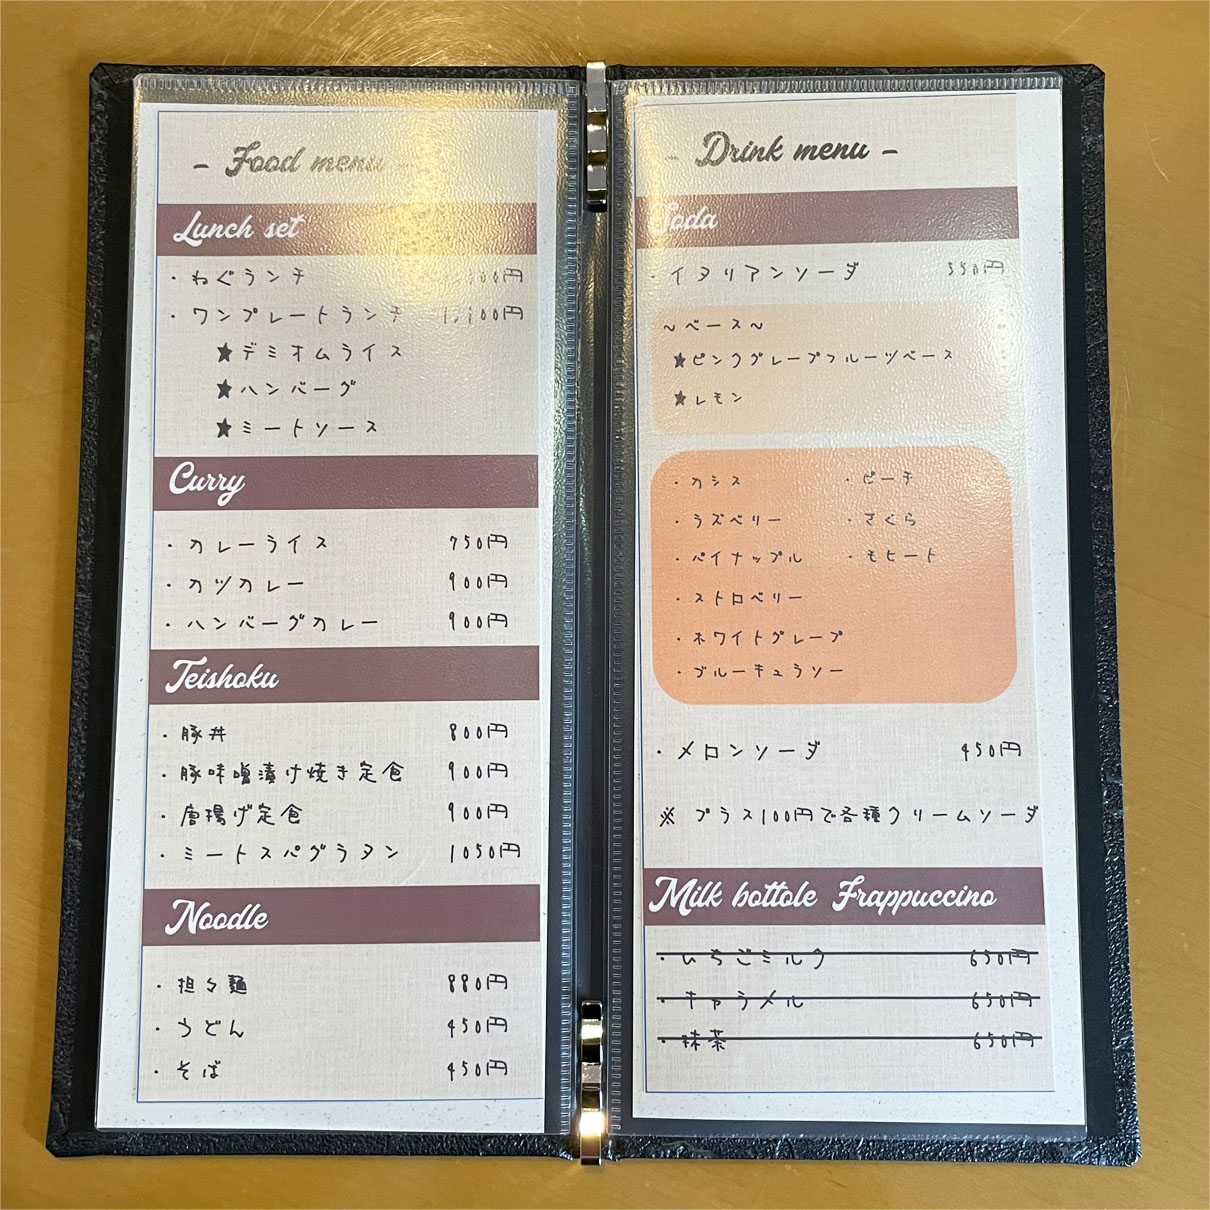 - Food menu -
Lunch set
・ねぐランチ 00円
・ワンプレートランチ 1,100円
★デミオムライス
★ハンバーグ
★ミートソース
Curry
・カレーライス 750円
・カツカレー 900円
・ハンバーグカレー 900円
Teishoku
・豚丼 800円
・豚味噌漬け焼き定食 900円
・唐揚げ定食 900円
・ミートスパグラタン 1050円
Noodle
・担々麺 880円
・うどん 450円
・そば 450円
- Drink menu -
Soda
・イタリアンソーダ 550円
~ベース~
★ピンクグレープフルーツベース
★レモン
・カシス ・ピーチ
・ラズベリー ・さくら
・パイナップル ・モヒート
・ストロベリー
・ホワイトグレープ
・ブルーキュラソー
・メロンソーダ 450円
※ プラス100円で各種クリームソーダ
Milk bottole Frappuccino
・いちごミルク 650円
・キャラメル 650円
・抹茶 650円